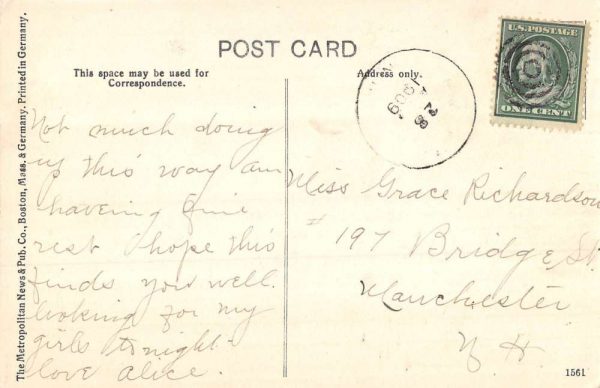 POST CARD
This space may be used for
Correspondence.
Address only.
U.S. POSTAGE
ONE CENT
1909
Not much doing
up this way am
haveing fine
rest I hope this
finds you well.
looking for my
girls tonight-
love alice.
Miss Grace Richardson
# 197 Bridge St.
Manchester
N H
The Metropolitan News & Pub. Co., Boston, Mass. & Germany. Printed in Germany.
1561